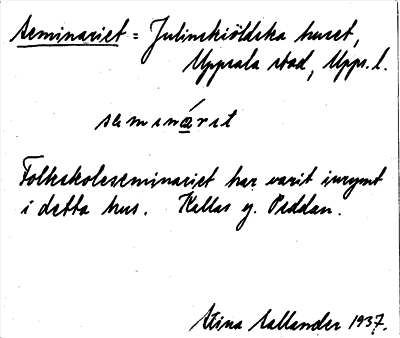 Seminariet = Julinskiöldska huset,
Uppsala stad, Upps. l.
semináret
Folkskoleseminariet har varit inrymt
i detta hus. Kallas ej. Peddan.
Stina Callander 1937.